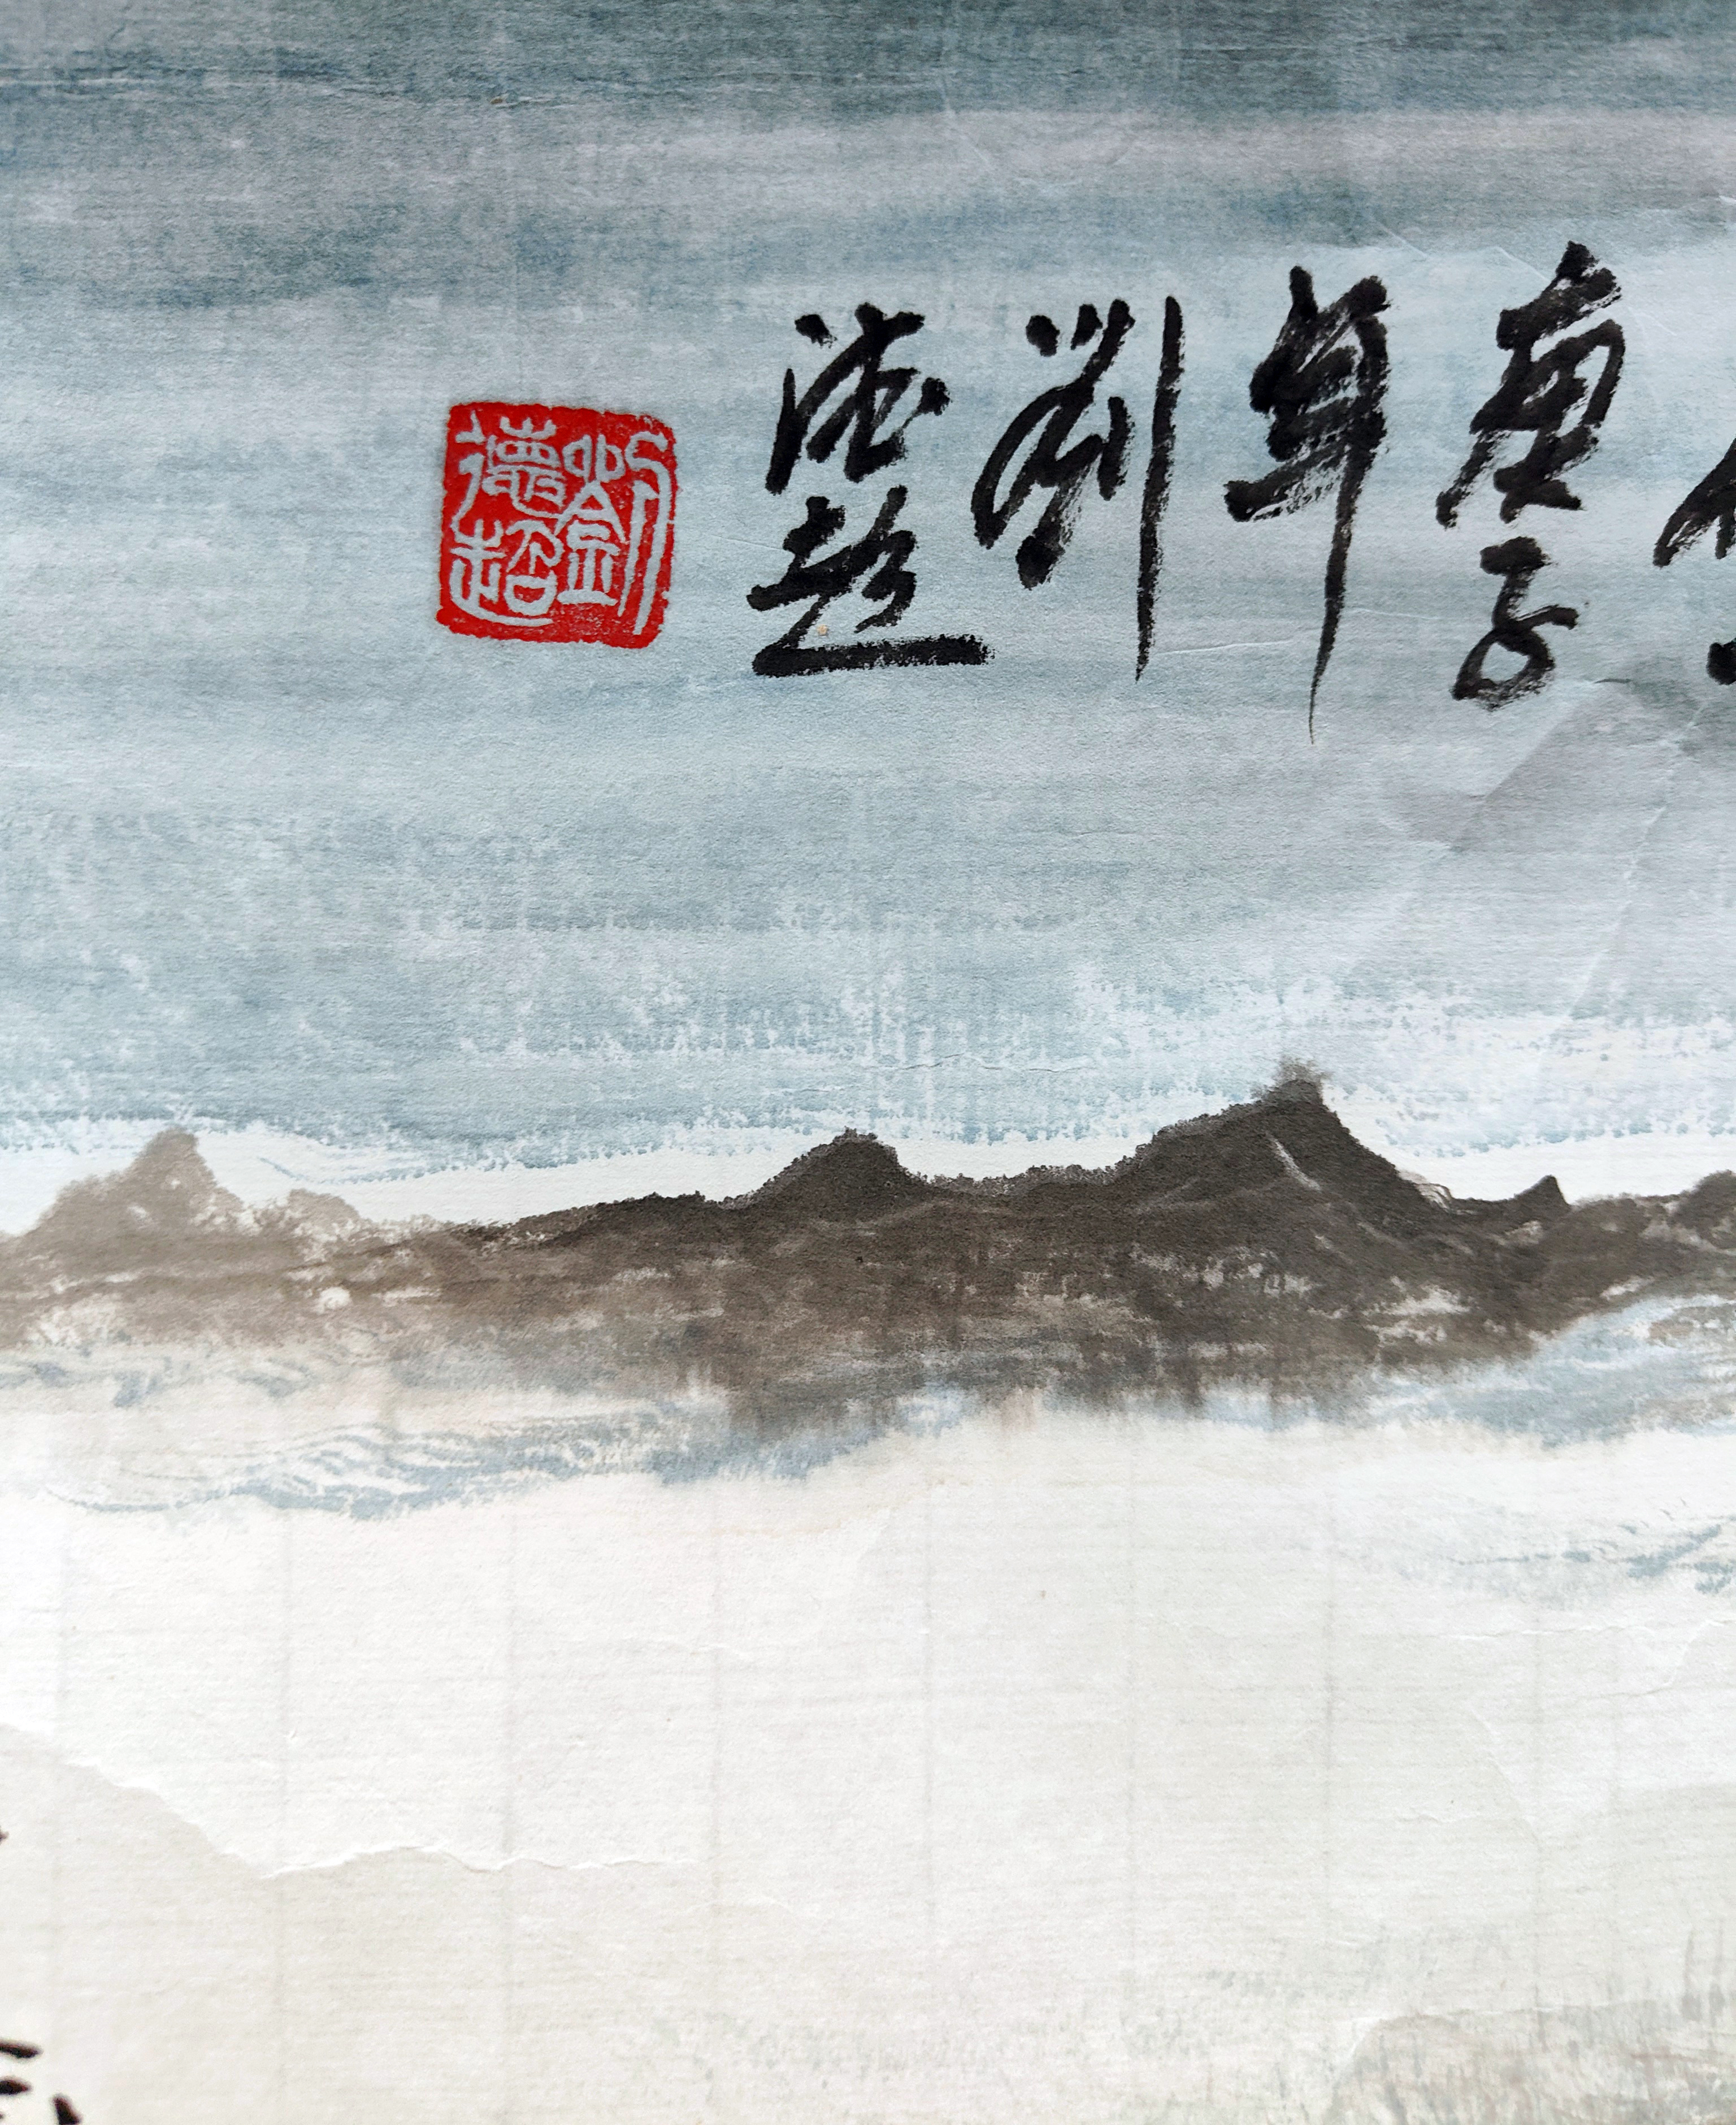 庚子
年
劉
德超
劉德超